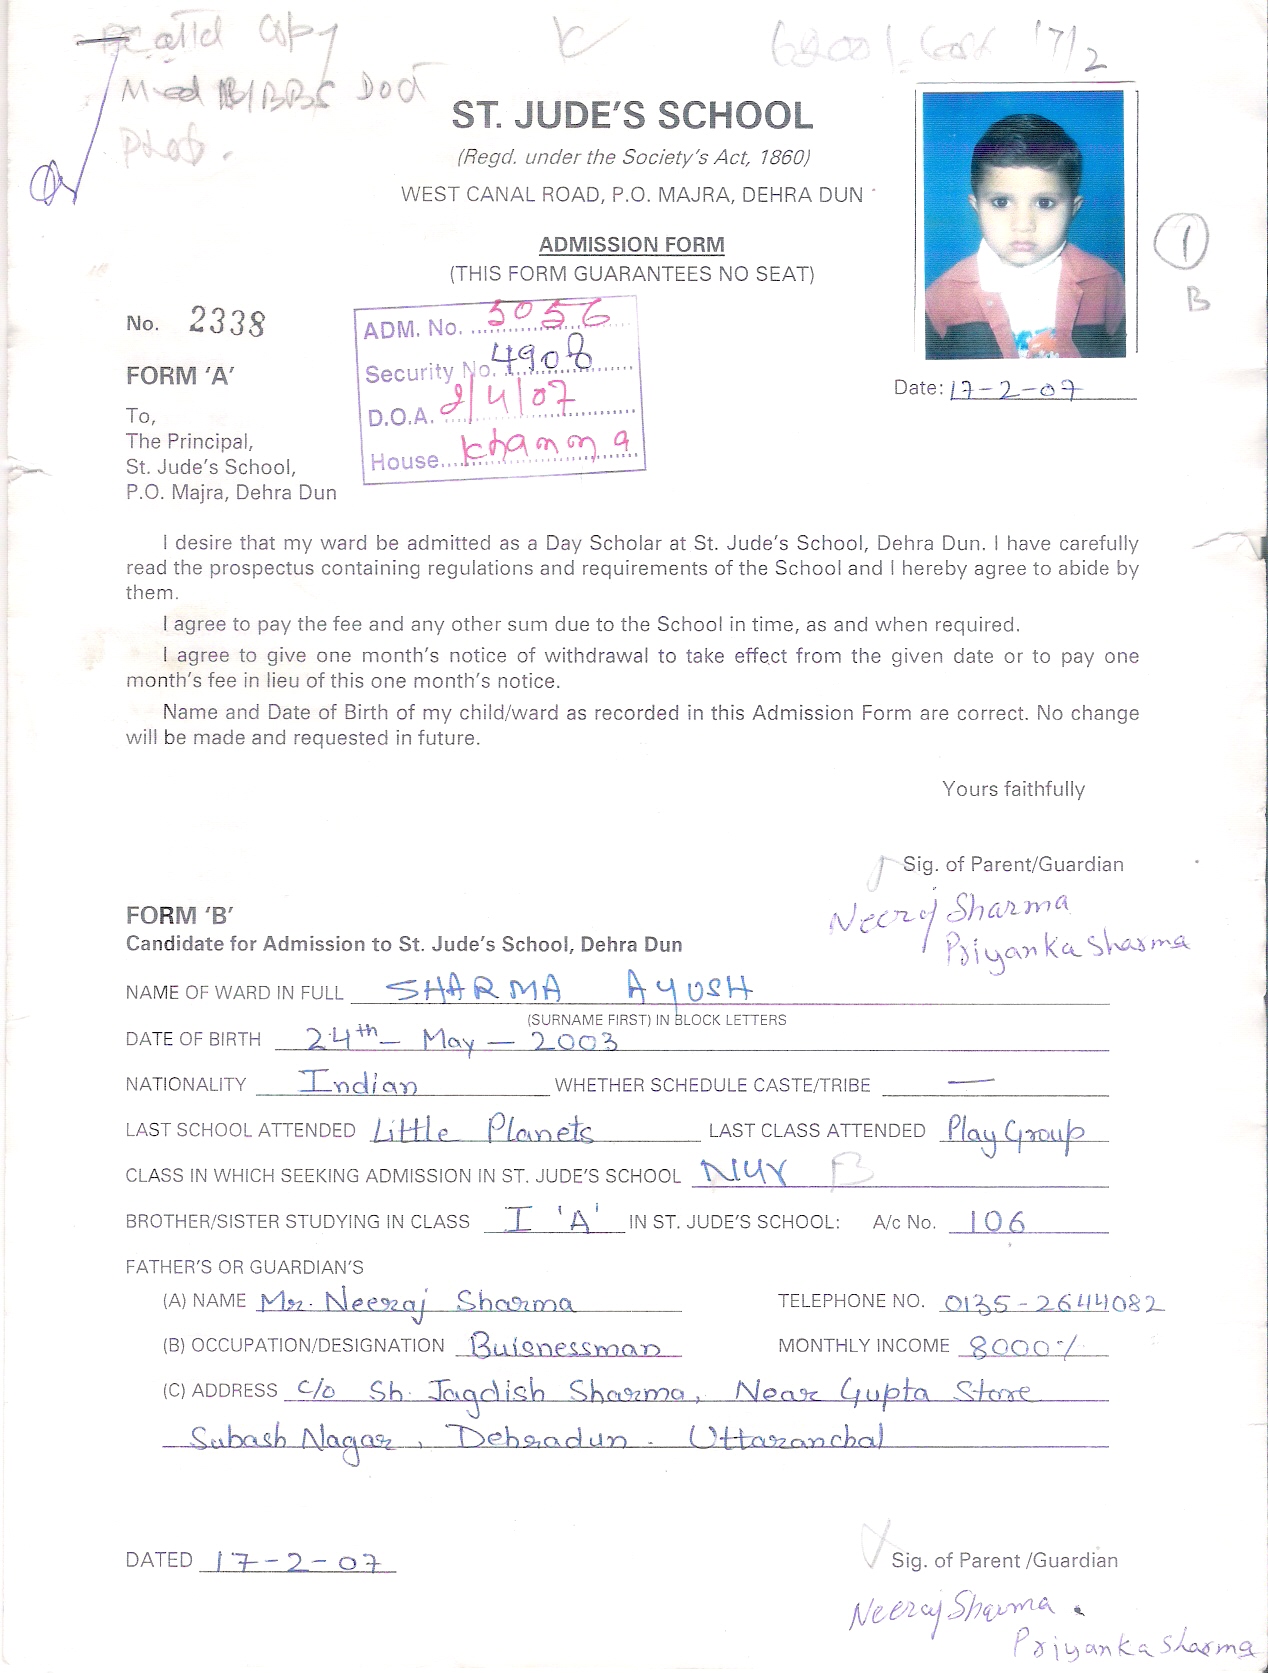 Copy
17/2
Med Doct
ST. JUDE'S SCHOOL
(Regd. under the Society's Act, 1860)
WEST CANAL ROAD, P.O. MAJRA, DEHRA DUN
ADMISSION FORM
(THIS FORM GUARANTEES NO SEAT)
1
B
No. 2338
ADM. No. 5056
Security No. 4908
D.O.A. 2/4/07
House Khanna
FORM 'A'
Date: 17-2-07
To,
The Principal,
St. Jude's School,
P.O. Majra, Dehra Dun
I desire that my ward be admitted as a Day Scholar at St. Jude's School, Dehra Dun. I have carefully
read the prospectus containing regulations and requirements of the School and I hereby agree to abide by
them.
I agree to pay the fee and any other sum due to the School in time, as and when required.
I agree to give one month's notice of withdrawal to take effect from the given date or to pay one
month's fee in lieu of this one month's notice.
Name and Date of Birth of my child/ward as recorded in this Admission Form are correct. No change
will be made and requested in future.
Yours faithfully
Sig. of Parent/Guardian
Neeraj Sharma
Priyanka Sharma
FORM 'B'
Candidate for Admission to St. Jude's School, Dehra Dun
NAME OF WARD IN FULL SHARMA AYUSH
(SURNAME FIRST) IN BLOCK LETTERS
DATE OF BIRTH 24th - May - 2003
NATIONALITY Indian WHETHER SCHEDULE CASTE/TRIBE —
LAST SCHOOL ATTENDED Little Planets LAST CLASS ATTENDED Play Group
CLASS IN WHICH SEEKING ADMISSION IN ST. JUDE'S SCHOOL NUR B
BROTHER/SISTER STUDYING IN CLASS I 'A' IN ST. JUDE'S SCHOOL: A/c No. 106
FATHER'S OR GUARDIAN'S
(A) NAME Mr. Neeraj Sharma TELEPHONE NO. 0135-2644082
(B) OCCUPATION/DESIGNATION Buisnessman MONTHLY INCOME 8000/-
(C) ADDRESS C/o Sh. Jagdish Sharma, Near Gupta Store
Subash Nagar, Dehradun. Uttaranchal
DATED 17-2-07
Sig. of Parent /Guardian
Neeraj Sharma.
Priyanka Sharma